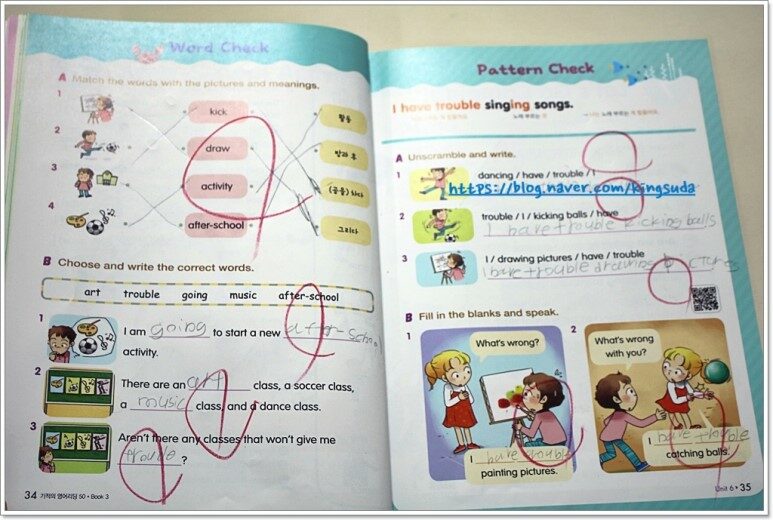 Word Check
A Match the words with the pictures and meanings.
1
2
3
4
kick
draw
activity
after-school
활동
방과 후
(공을) 차다
그리다
B Choose and write the correct words.
art trouble going music after-school
1 I am going to start a new after-school
activity.
2 There are an art class, a soccer class,
a music class, and a dance class.
3 Aren't there any classes that won't give me
trouble ?
34 기적의 영어리딩 50 • Book 3
Pattern Check
I have trouble singing songs.
A Unscramble and write.
1 dancing / have / trouble / I
https://blog.naver.com/kingsuda
2 trouble / I / kicking balls / have
I have trouble kicking balls
3 I / drawing pictures / have / trouble
I have trouble drawing pictures
B Fill in the blanks and speak.
1
What's wrong?
I have trouble
painting pictures.
2
What's wrong
with you?
I have trouble
catching balls.
Unit 6 • 35